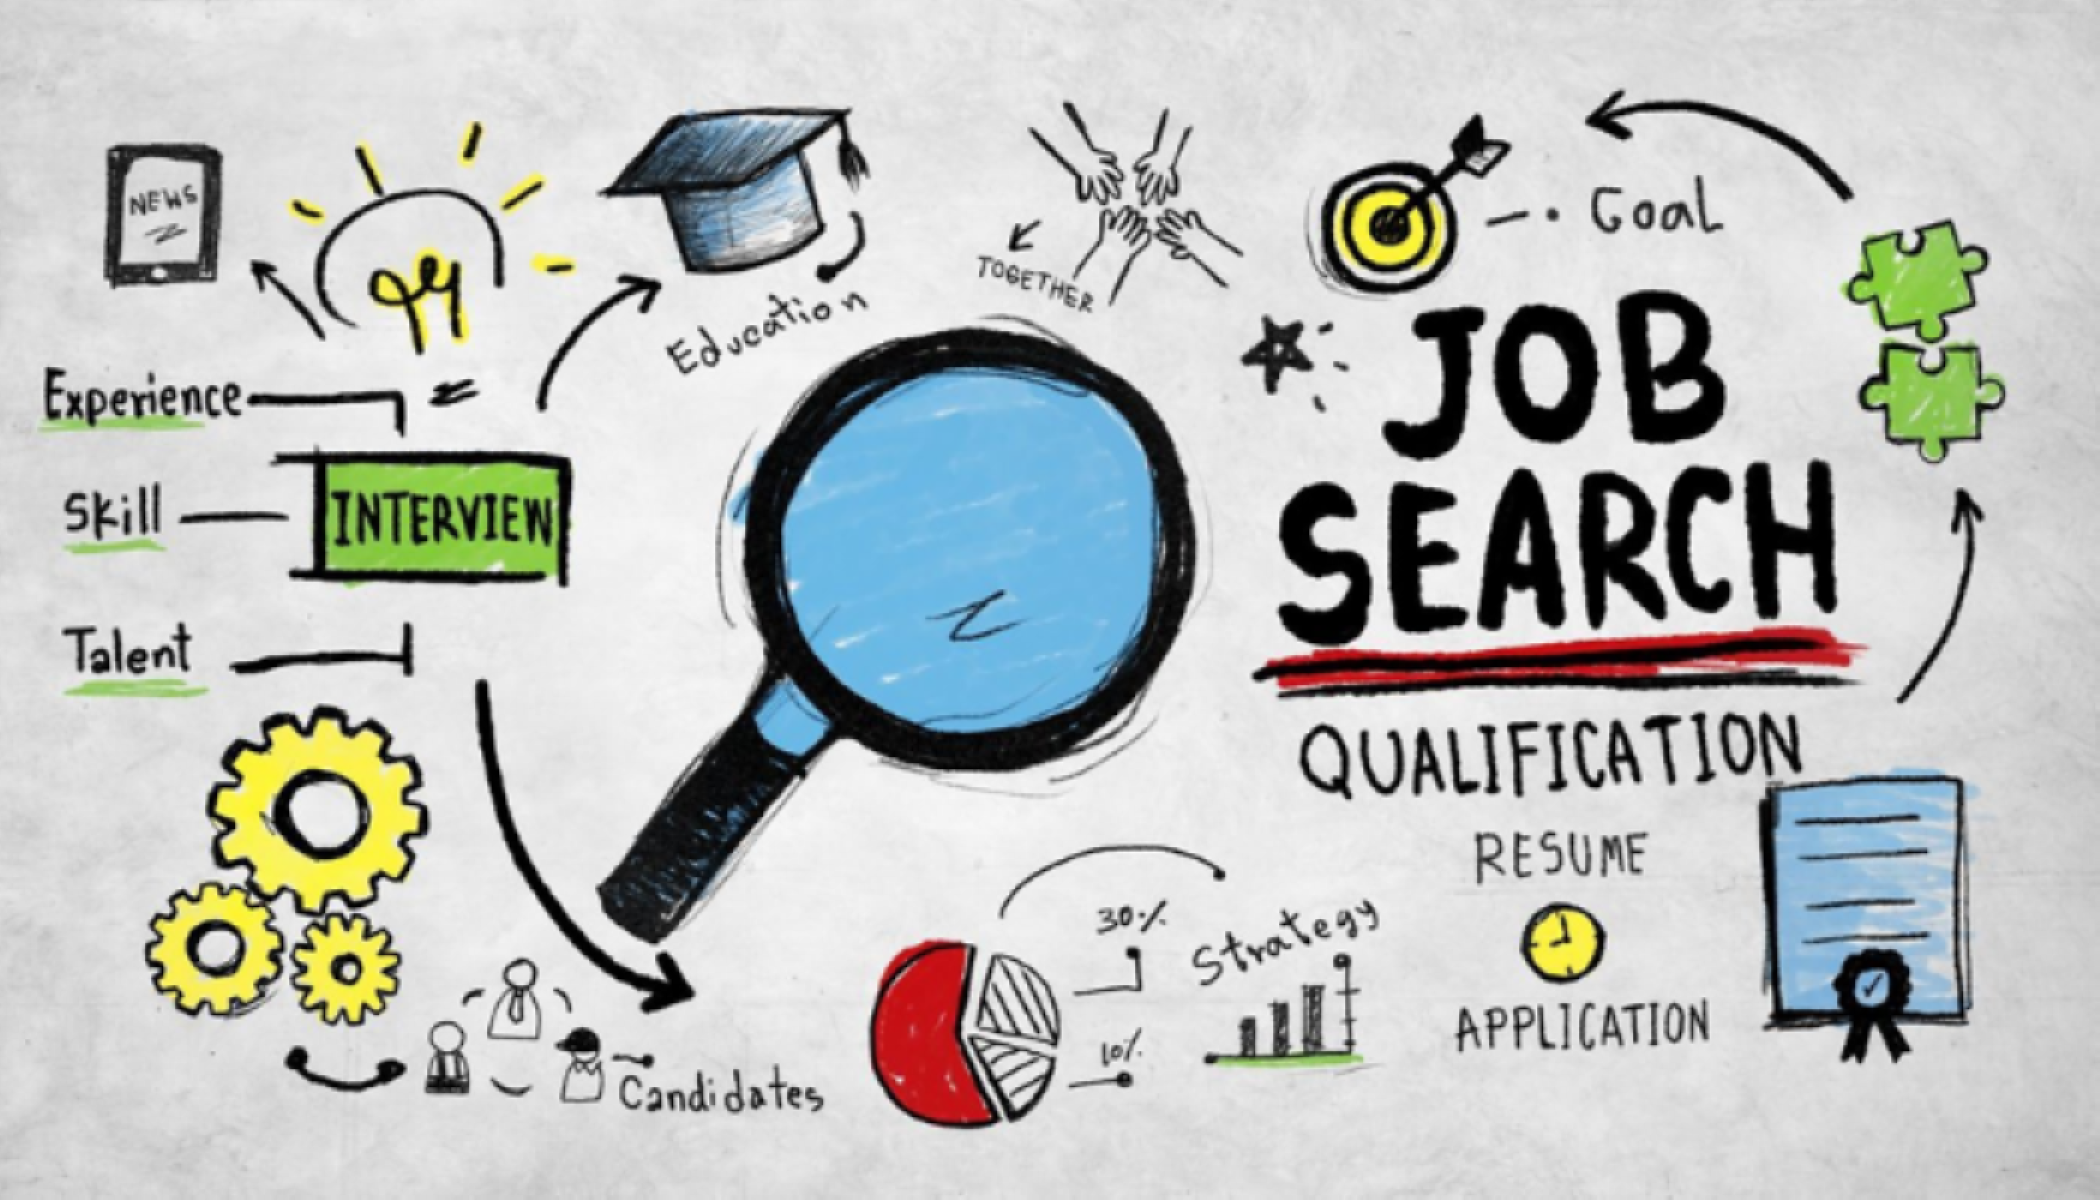 NEWS
Education
TOGETHER
Goal
Experience
Skill
Talent
INTERVIEW
JOB
SEARCH
QUALIFICATION
RESUME
APPLICATION
30%
10%
Strategy
Candidates